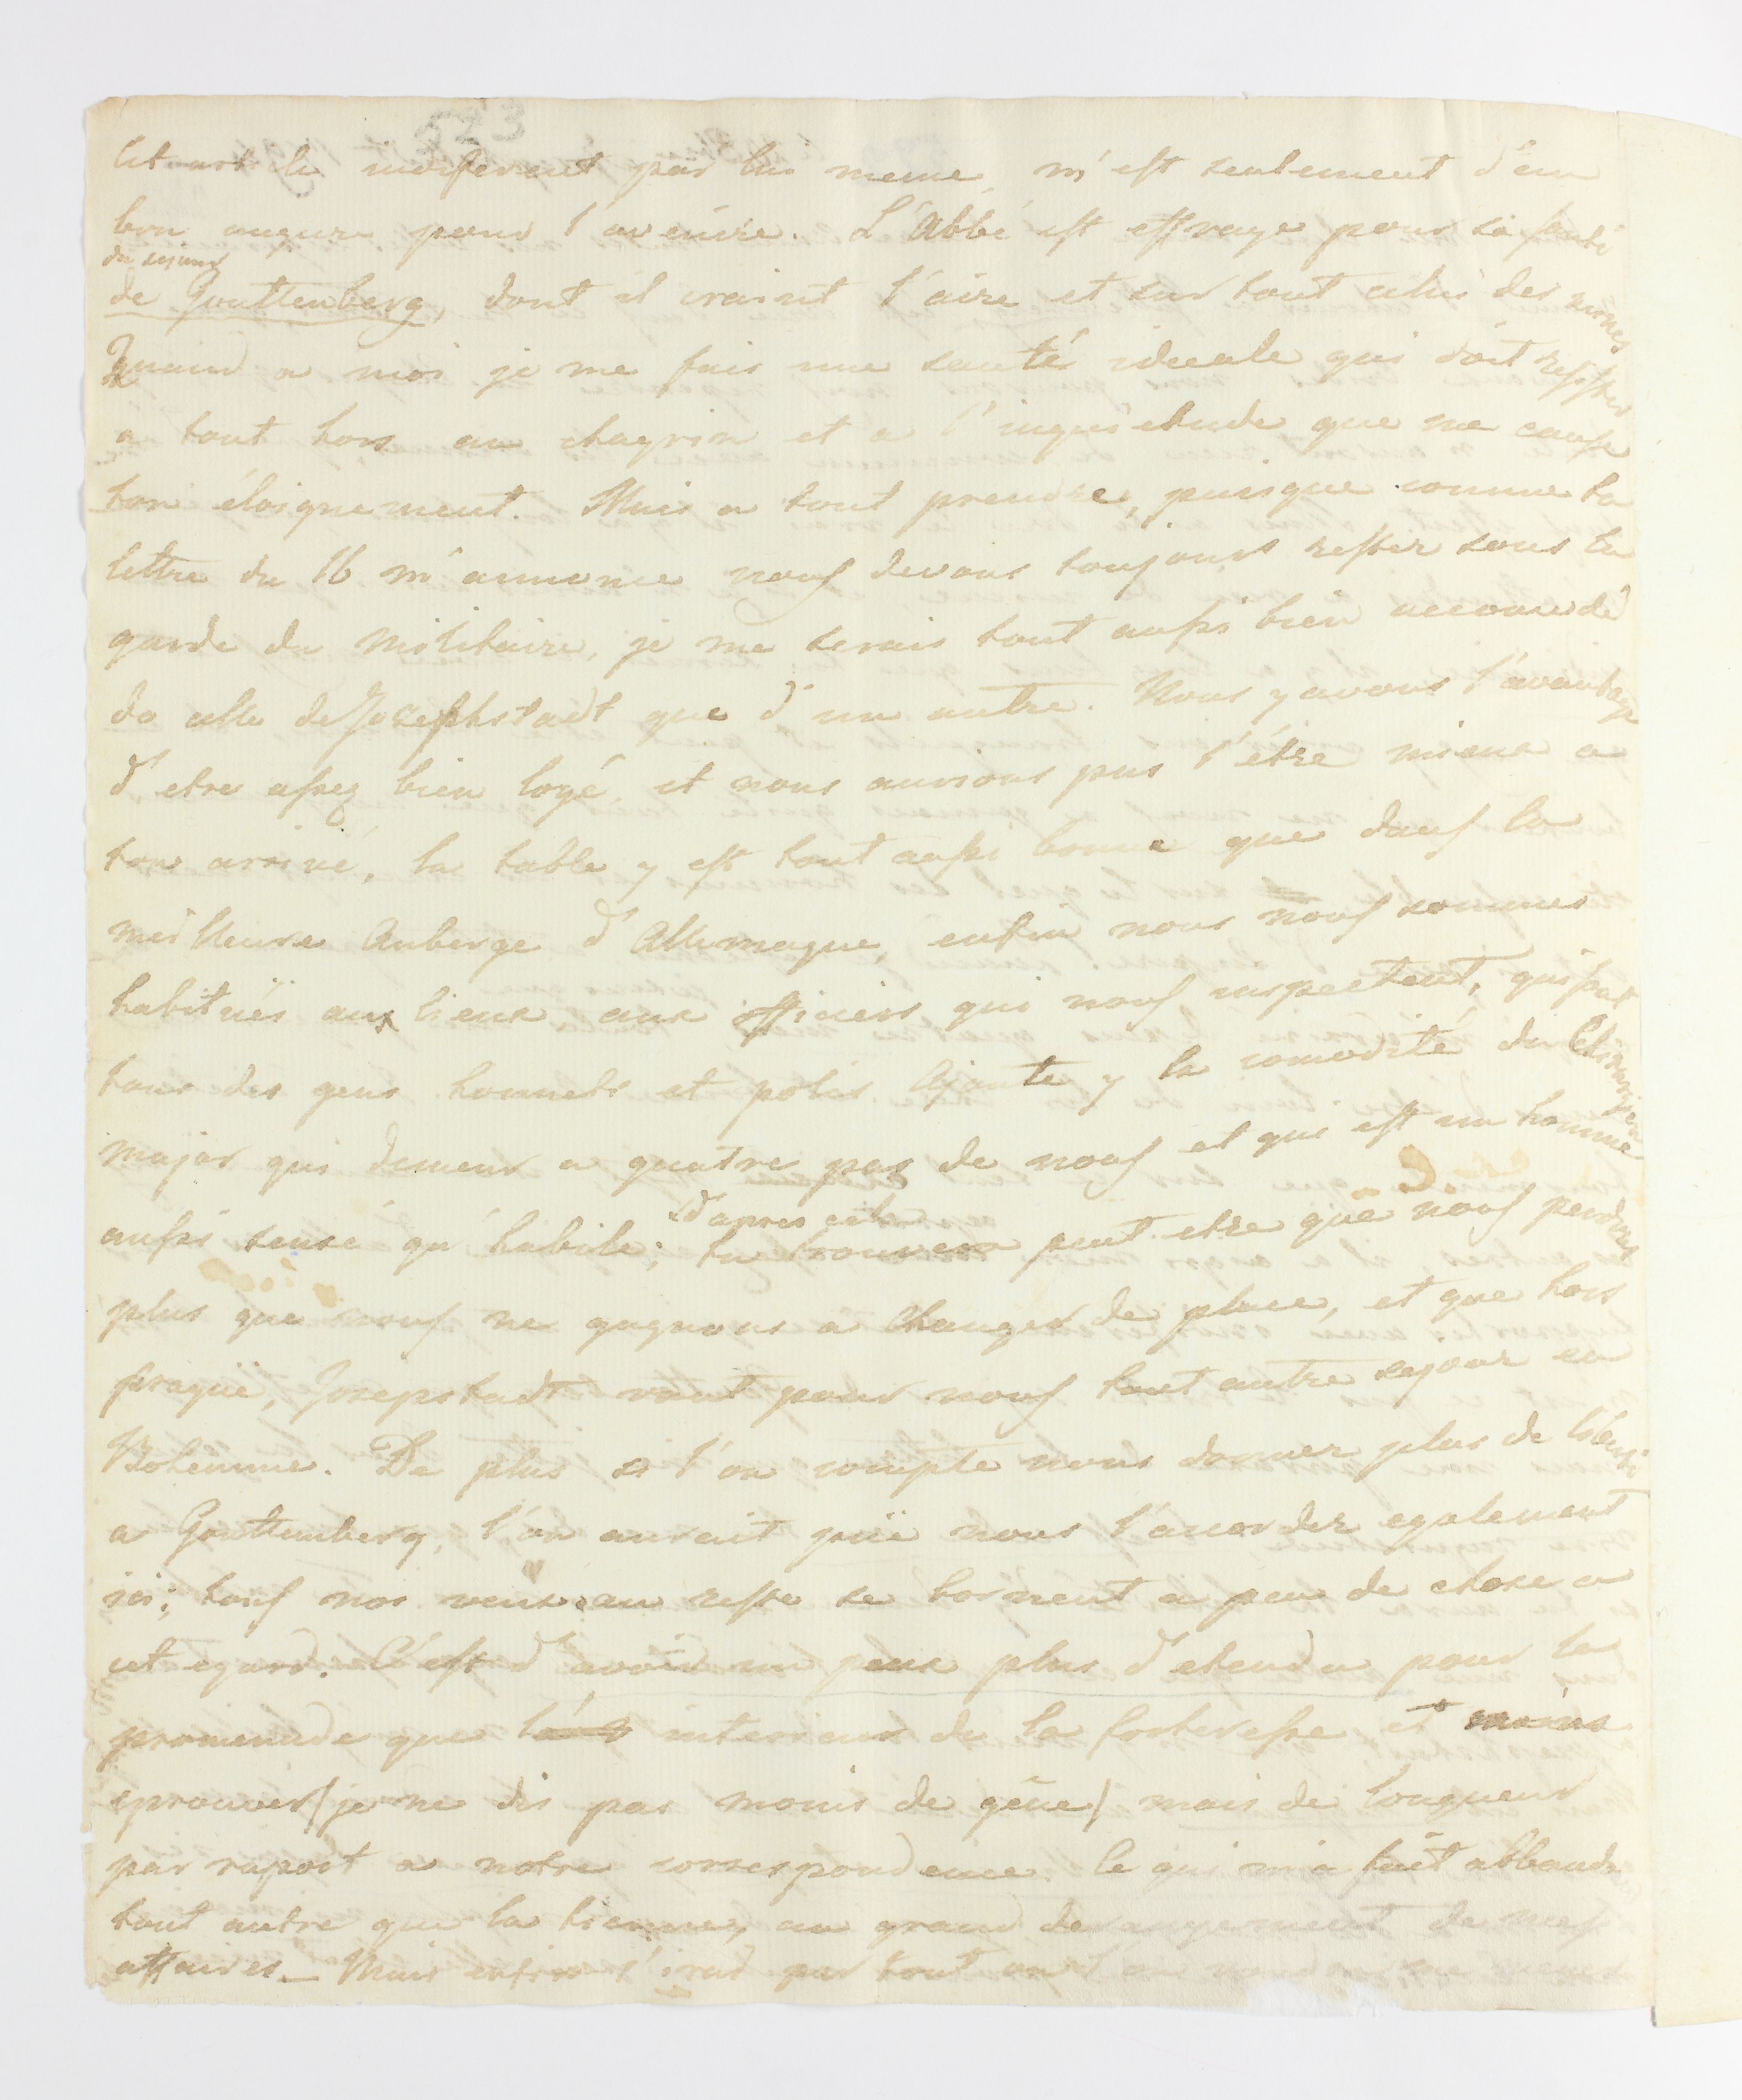 523
Cet article indiferent par lui meme, m'est seulement d'un
bon augure pour l'aveniere. L'Abbé est effraye pour sa santé
du sejour
de Gouttenberg, dont il craint l'aire et sur tout celui des mines
Quand a moi je me fais une santé ideeale qui doit resister
a tout hors au chagrin et a l'inquietude que me cause
ton éloignement. Mais a tout prendre, puisque comme ta
lettre du 16 m'annonce nous devons toujours rester sous la
garde du militaire, je me serais tout aussi bien accomodé
de celle de Josephstadt que d'un autre. Nous y avons l'avantage
d'etre assez bien logé, et nous aurions pus l'être mieux a
ton arrivé, la table y est tout aussi bonne que dans la
meilleure Auberge d'Allemagne, enfin nous nous sommes
habitués aux lieux, aux officiers qui nous inspectent, qui sont
tous des gens honnets et polis. Ajoute y la comodité du Chirurgien
major qui demeur a quatre pas de nous et qui est un homme
aussi sensé qu'habile;
d'apres cela
tu trouveras peut etre que nous perdons
plus que nous ne gagnons a changer de place, et que hors
prague, Josepstadt vaut pour nous tout autre sejour en
Bohemme. De plus si l'on compte nous donner plus de liberté
a Gouttenberg, l'on aurait pué nous l'accorder egalement
ici; tous nos veux au reste se bornent a peu de chose a
cet egard. C'est d'avoir un peux plus d'etendu pour la
promenade que l'interieur de la forteresse et moins
eprouver /je ne dis pas moins de gêne/ mais de longueur
par raport a notre correspondence. Ce qui m'a fait abbando
tout autre que la tienne, au grand derangement de mes
affaires_ Mais enfin j'irai par tout ou l'on voudra me mener